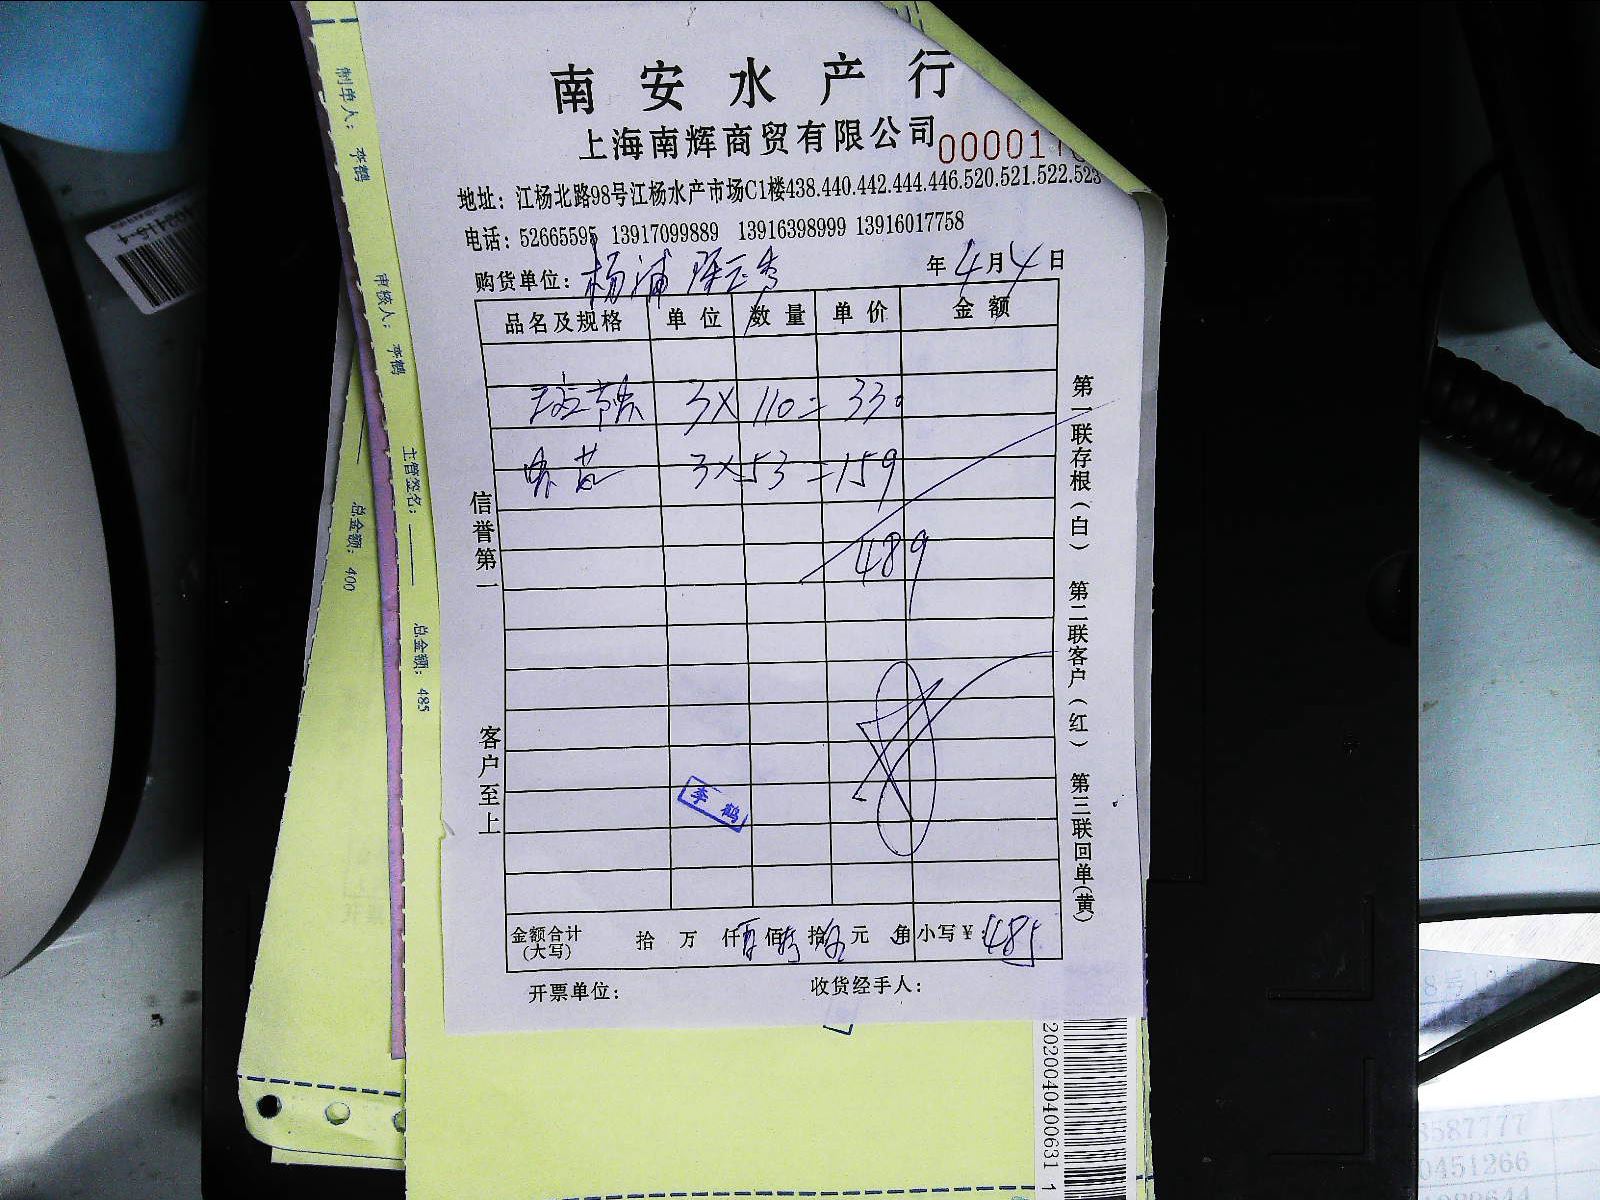 南安水产行
上海南辉商贸有限公司
00001
地址：江杨北路98号江杨水产市场C1楼438.440.442.444.446.520.521.522.523
电话：52665595 13917099889 13916398999 13916017758
购货单位：杨浦 年4月4日
品名及规格 单位 数量 单价 金额
3×110=330
3×53=159
489
信誉第一
客户至上
李鹤
金额合计(大写) 拾 万 仟 佰 拾 元 角 小写￥：485
开票单位：
收货经手人：
第一联存根(白) 第二联客户(红) 第三联回单(黄)
制单人：李鹤
审核人：李鹤
主管签名：
总金额：485
总金额：400
2020040400631 1
8587777
0451266